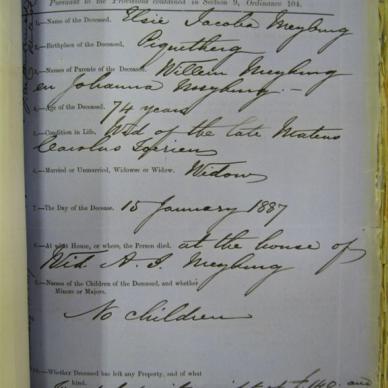 Pursuant to the Provisions contained in Section 9, Ordinance 104.
1.—Name of the Deceased, Elsie Jacoba Meyburg
2.—Birthplace of the Deceased, Piquetberg
3.—Names of Parents of the Deceased. Willem Meyburg
en Johanna Meyburg. —
4.—Age of the Deceased. 74 years
5.—Condition in Life, Wid of the late
Carolus
6.—Married or Unmarried, Widower or Widow. Widow
7.—The Day of the Decease. 15 January 1887
8.—At what House, or where, the Person died. at the house of
Wid A. J. Meyburg
9.—Names of the Children of the Deceased, and whether
Minors or Majors.
No children
10.—Whether Deceased has left any Property, and of what
kind. and